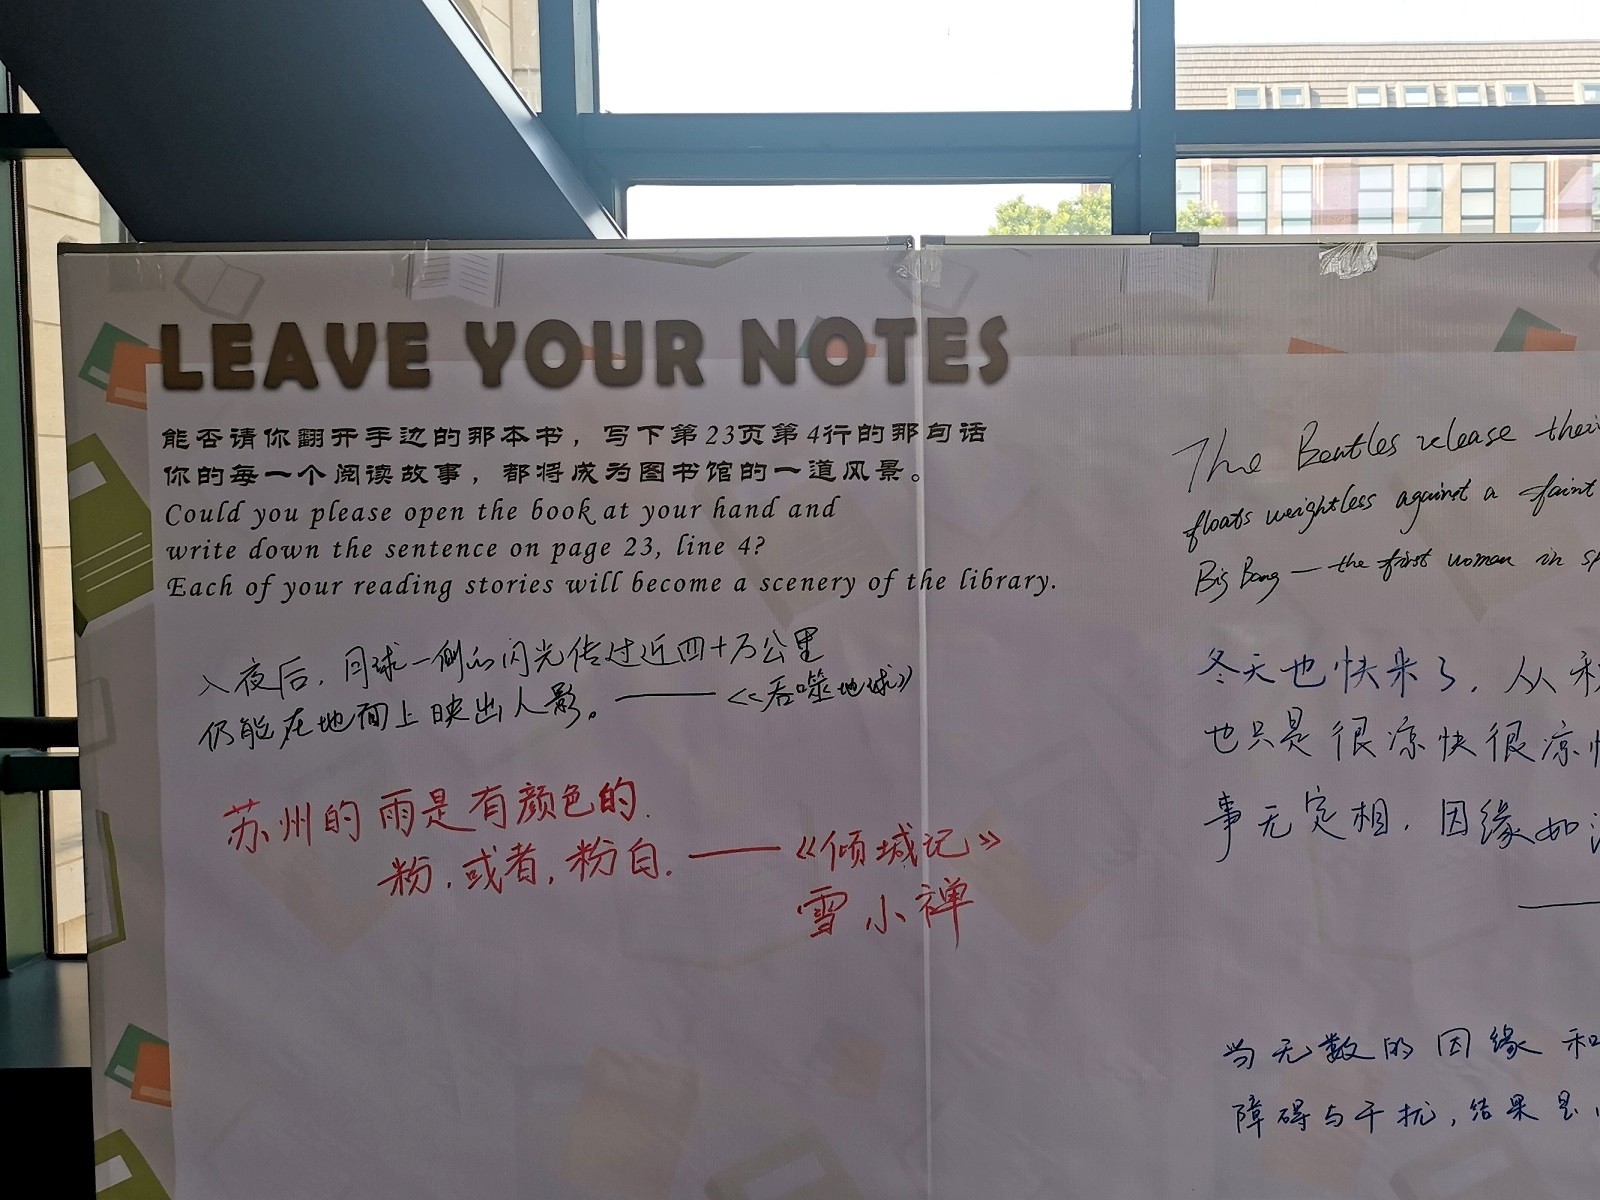 LEAVE YOUR NOTES
能否请你翻开手边的那本书，写下第23页第4行的那句话
你的每一个阅读故事，都将成为图书馆的一道风景。
Could you please open the book at your hand and
write down the sentence on page 23, line 4?
Each of your reading stories will become a scenery of the library.
入夜后，月球一侧的闪光传过近四十万公里
仍能在地面上映出人影。——《吞噬地球》
苏州的雨是有颜色的.
粉.或者,粉白.——《倾城记》
雪小禅
The Beatles release their
floats weightless against a faint
Big Bang — the first woman in sp
冬天也快来了，从秋
也只是很凉快很凉快
事无定相．因缘如
当无数的因缘和
障碍与干扰，结果是